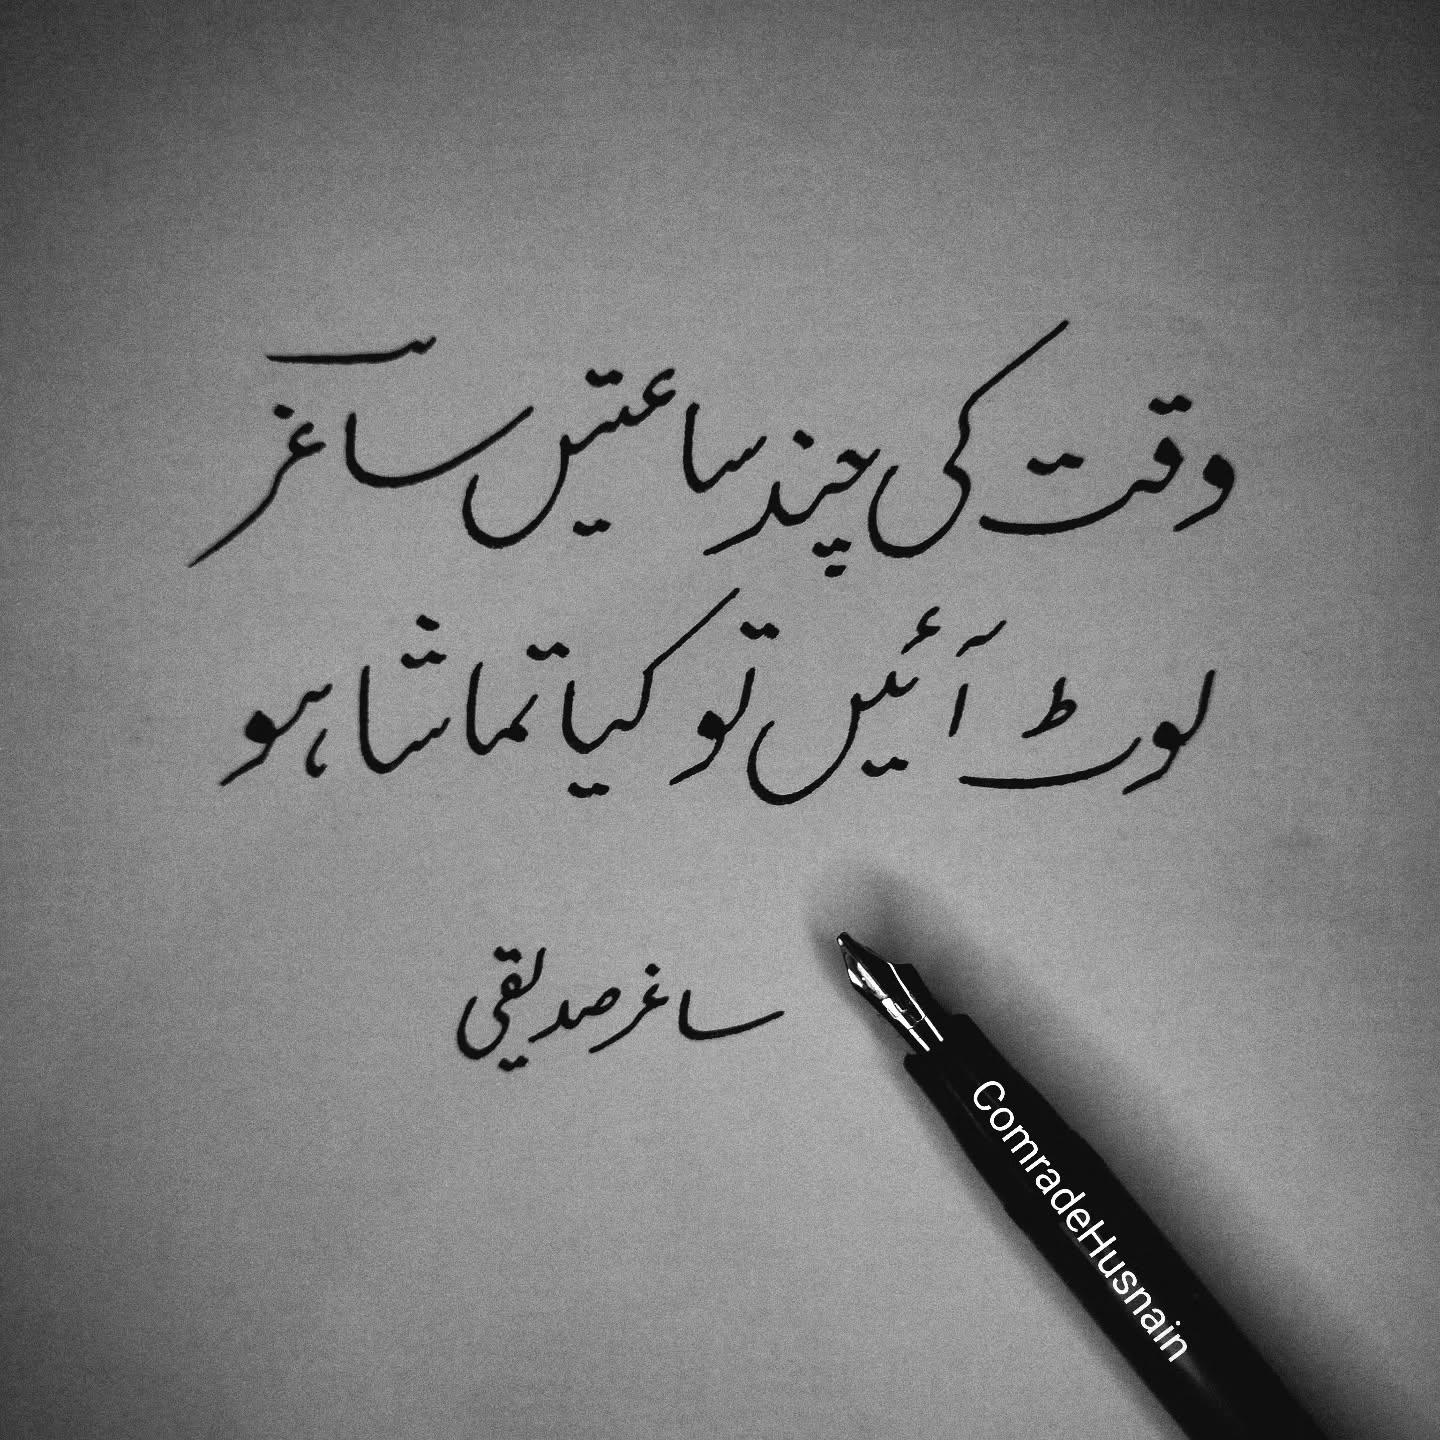 وقت کی چند ساعتیں ساغرؔ
لوٹ آئیں تو کیا تماشا ہو
ساغر صدیقی
ComradeHusnain